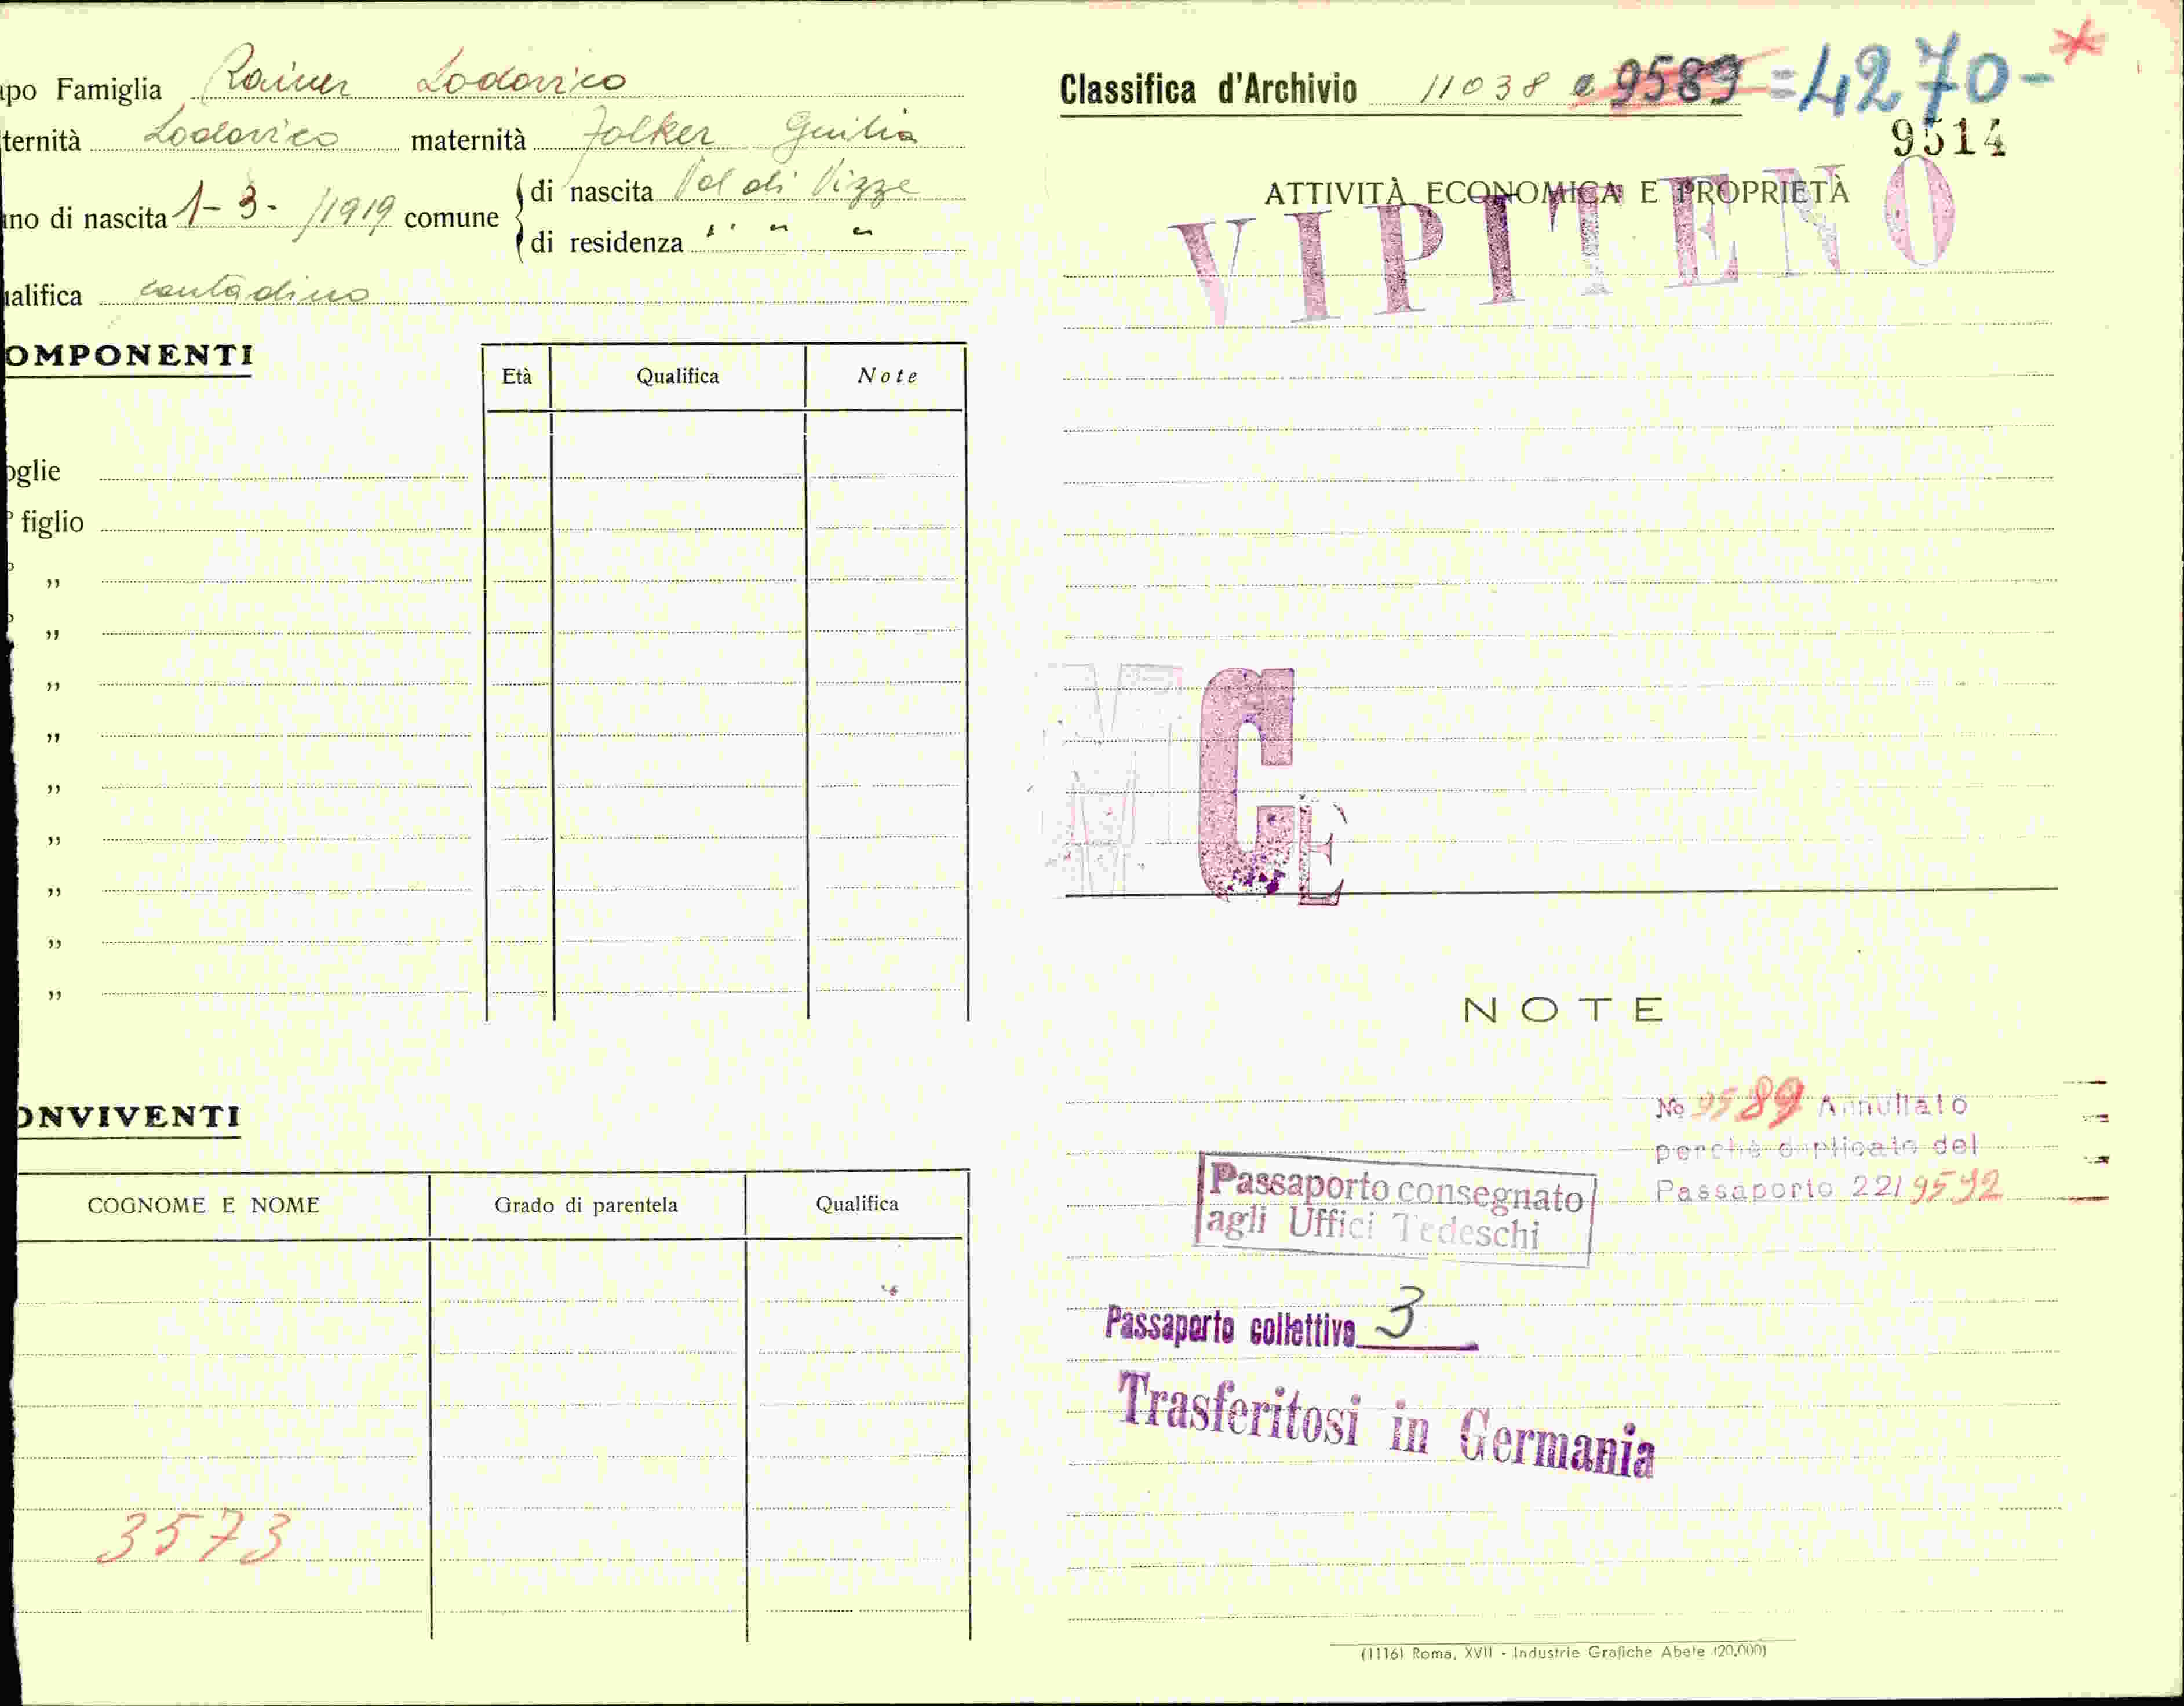 apo Famiglia Rainer Lodovico
ternità Lodovico maternità Folker Guilia
no di nascita 1-3-/1919 comune
di nascita Val di Vizze
di residenza " " "
alifica contadino
OMPONENTI
Età Qualifica Note
oglie
° figlio
° "
° "
"
"
"
"
"
"
"
ONVIVENTI
COGNOME E NOME Grado di parentela Qualifica
3573
Classifica d'Archivio 11038 e 9589 =4270-*
9514
ATTIVITÀ ECONOMICA E PROPRIETÀ
VIPITENO
C E
NOTE
No 9589 Annullato
perchè duplicato del
Passaporto 221 9592
Passaporto consegnato
agli Uffici Tedeschi
Passaporto collettivo 3
Trasferitosi in Germania
(1116) Roma, XVII - Industrie Grafiche Abete (20.000)